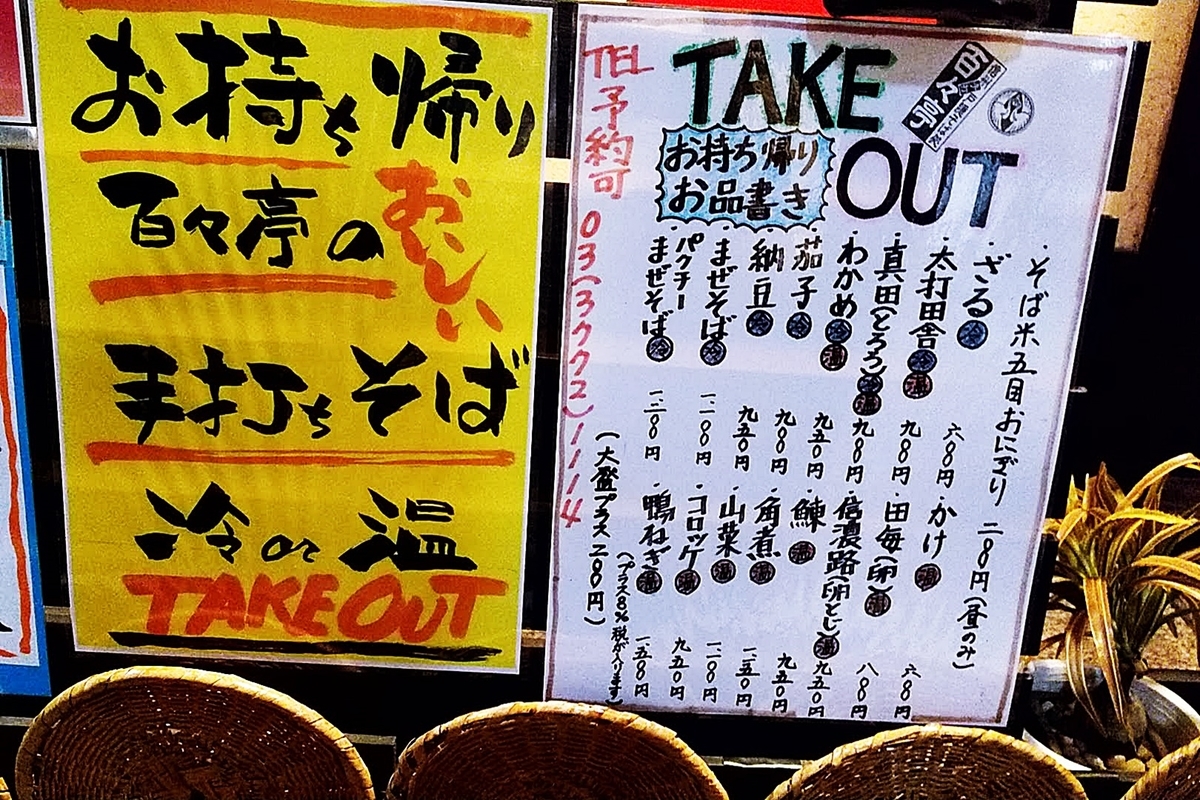 お持ち帰り
百々亭の
おいしい
手打ちそば
冷or温
TAKE OUT
TAKE
OUT
百々亭
お持ち帰り
お品書き
・そば米五目おにぎり 二〇八円(昼のみ)
・ざる冷 六〇〇円
・太打田舎冷温 九〇〇円
・真田(とろろ)冷温 九〇〇円
・わかめ冷温 九五〇円
・茄子冷 九〇〇円
・納豆冷 九五〇円
・まぜそば冷 一二〇〇円
・パクチーまぜそば冷 一三〇〇円
・かけ温 六〇〇円
・田毎(卵)温 八〇〇円
・信濃路(卵とじ)温 九五〇円
・鰊温 九五〇円
・角煮温 一三五〇円
・山菜温 一一〇〇円
・コロッケ温 九五〇円
・鴨ねぎ温 一五〇〇円
(大盛プラス二〇〇円)
(プラス8%税が入ります)
TEL予約可 03(3772)1114